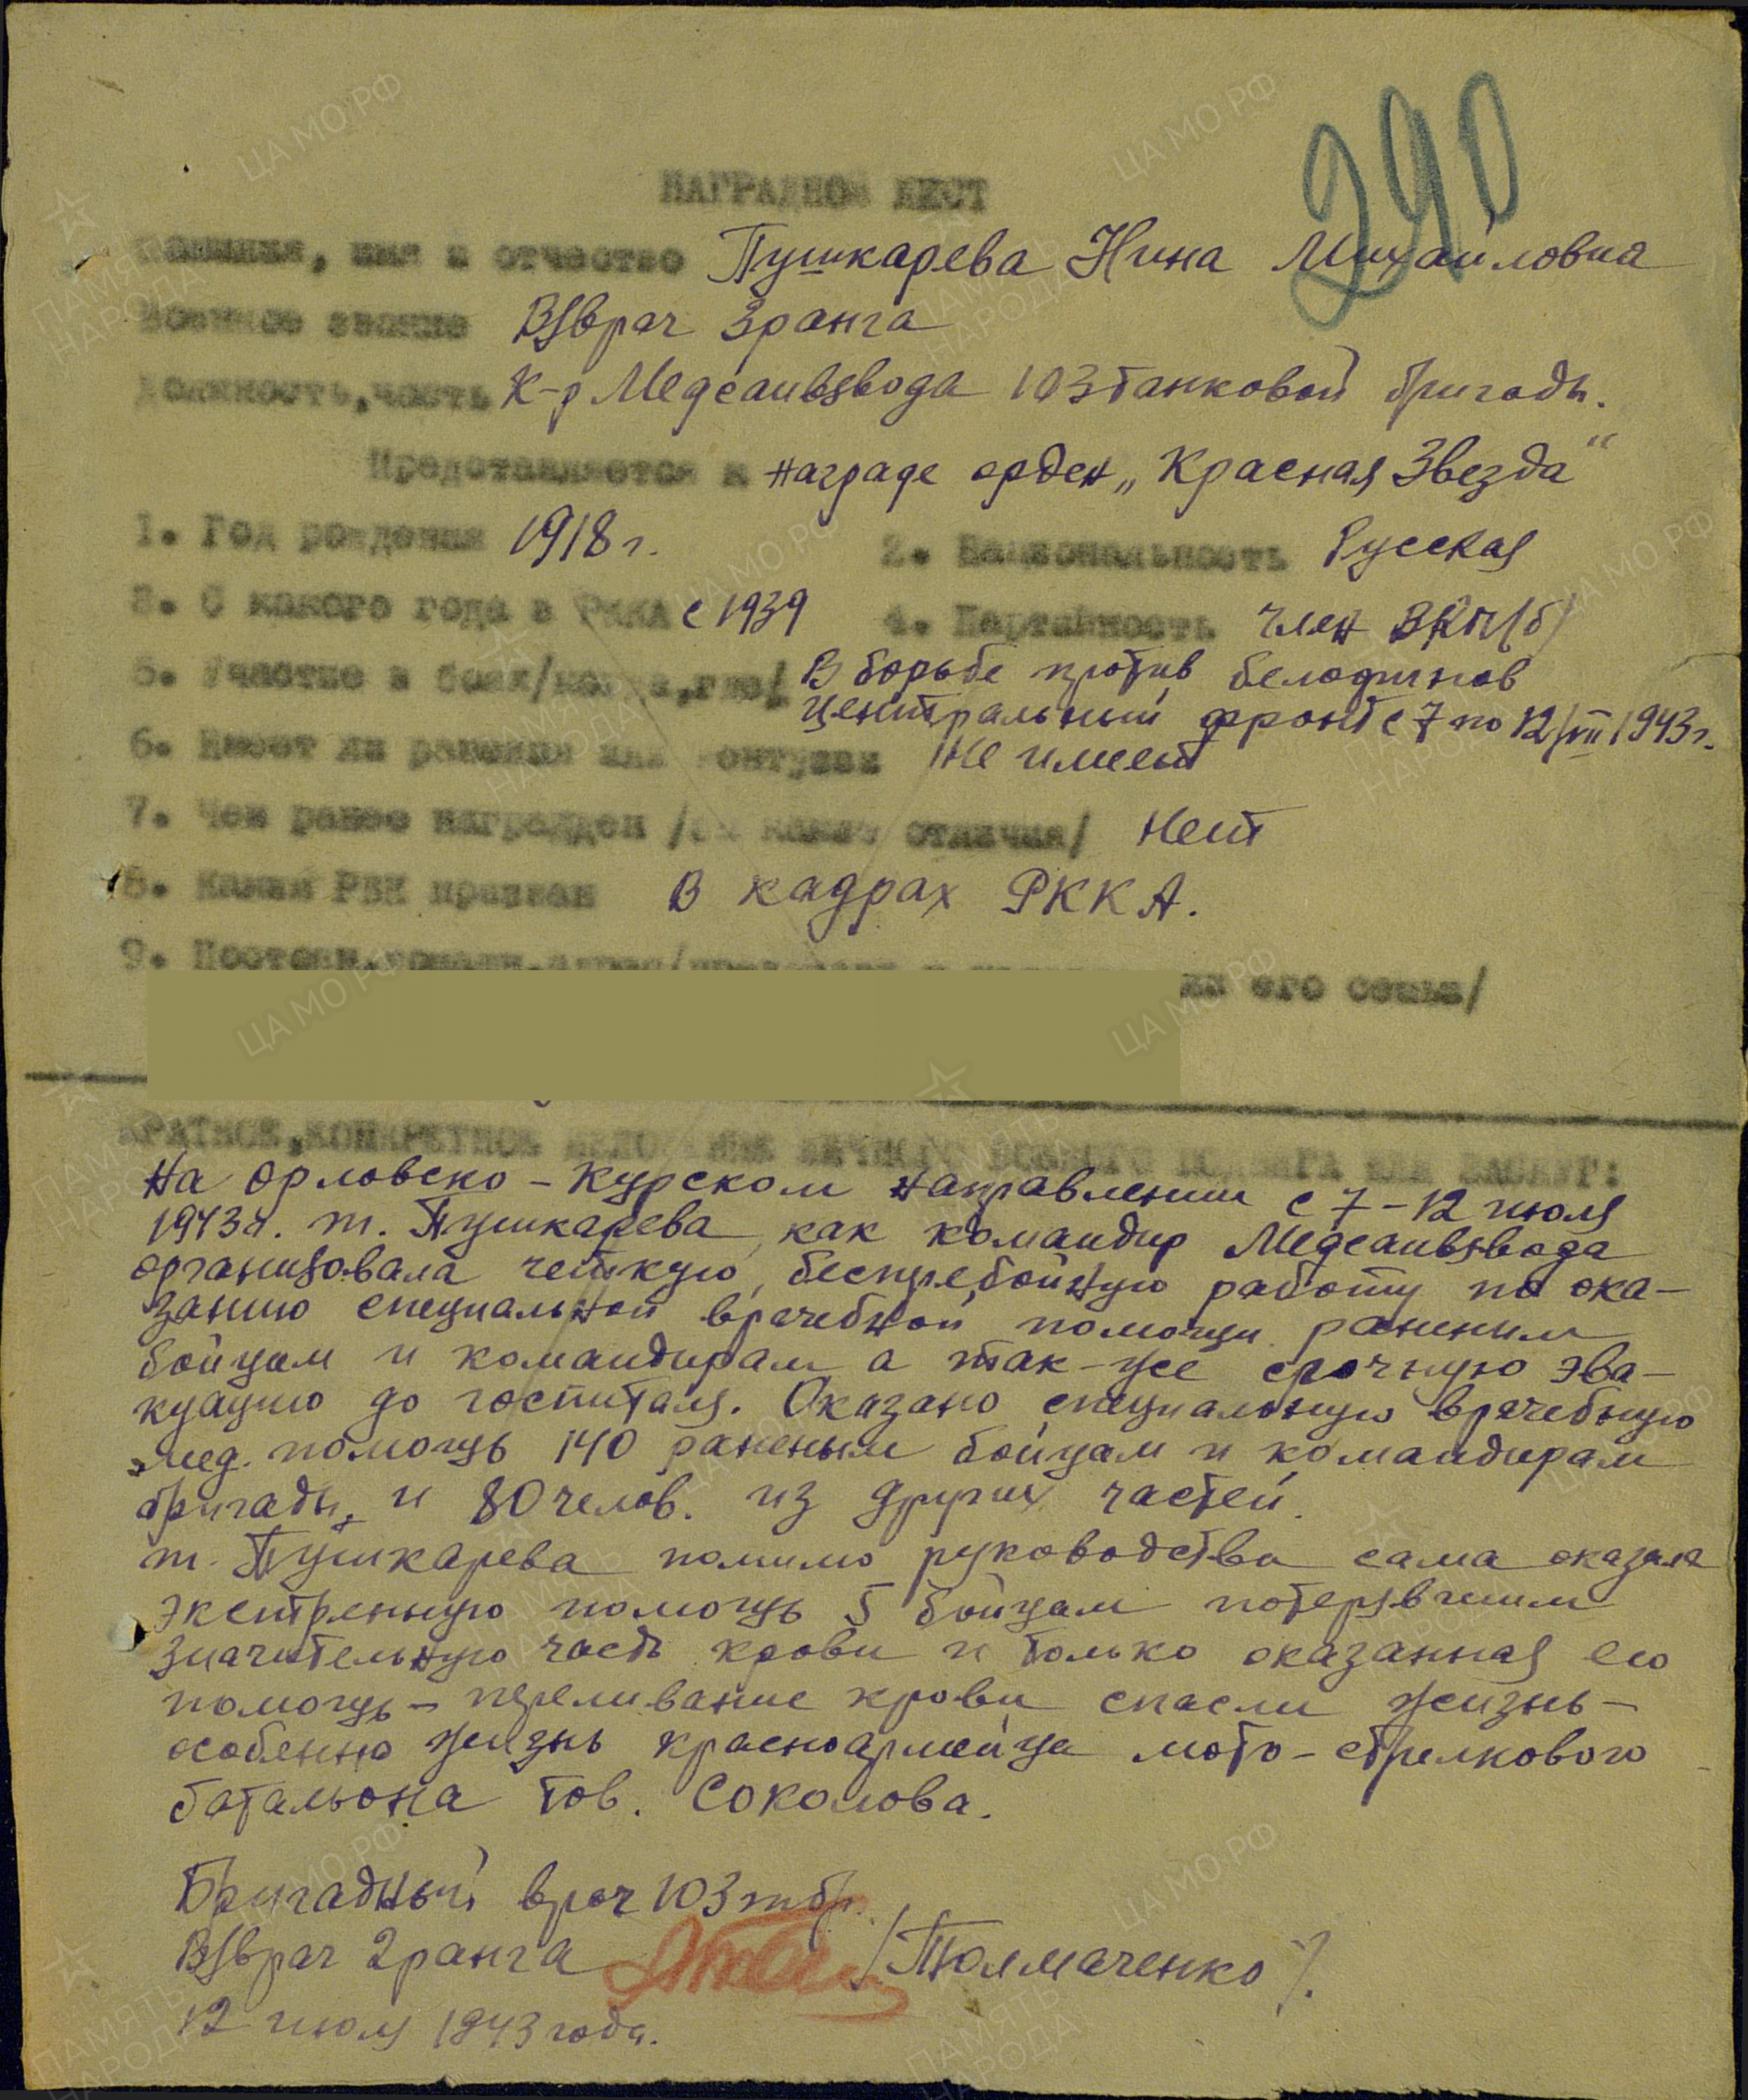 290
НАГРАДНОЙ ЛИСТ
Фамилия, имя и отчество Пушкарева Нина Михайловна
Военное звание В/врач 3 ранга
Должность, часть К-р Медсанвзвода 103 танковой бригады.
Представляется к награде орден „Красная Звезда“
1. Год рождения 1918 г. 2. Национальность Русская
3. С какого года в РККА с 1939 4. Партийность член ВКП/б/
5. Участие в боях/когда, где/ В борьбе против белофинов
Центральный фронт с 7 по 12/VII 1943 г.
6. Имеет ли ранения или контузии Не имеет
7. Чем ранее награжден /за какие отличия/ Нет
8. Каким РВК призван В кадрах РККА.
9. его семьи/
КРАТКОЕ, КОНКРЕТНОЕ ИЗЛОЖЕНИЕ ЛИЧНОГО БОЕВОГО ПОДВИГА ИЛИ ЗАСЛУГ:
На Орловско-Курском направлении с 7-12 июля
1943 г. т. Пушкарева, как командир Медсанвзвода
организовала четкую, бесперебойную работу по ока-
занию специальной врачебной помощи раненым
бойцам и командирам а так-же срочную эва-
куацию до госпиталя. Оказано специальную врачебную
мед. помощь 140 раненым бойцам и командирам
бригады, и 80 челов. из других частей.
т. Пушкарева помимо руководства сама оказала
экстренную помощь 5 бойцам потерявшим
значительную часть крови и только оказанная ею
помощь - переливание крови спасли жизнь -
особенно жизнь красноармейца мото-стрелкового
батальона тов. Соколова.
Бригадный врач 103 тбр.
В/врач 2 ранга /Толмаченко/.
12 июля 1943 года.
ЦА МО РФ
ПАМЯТЬ НАРОДА